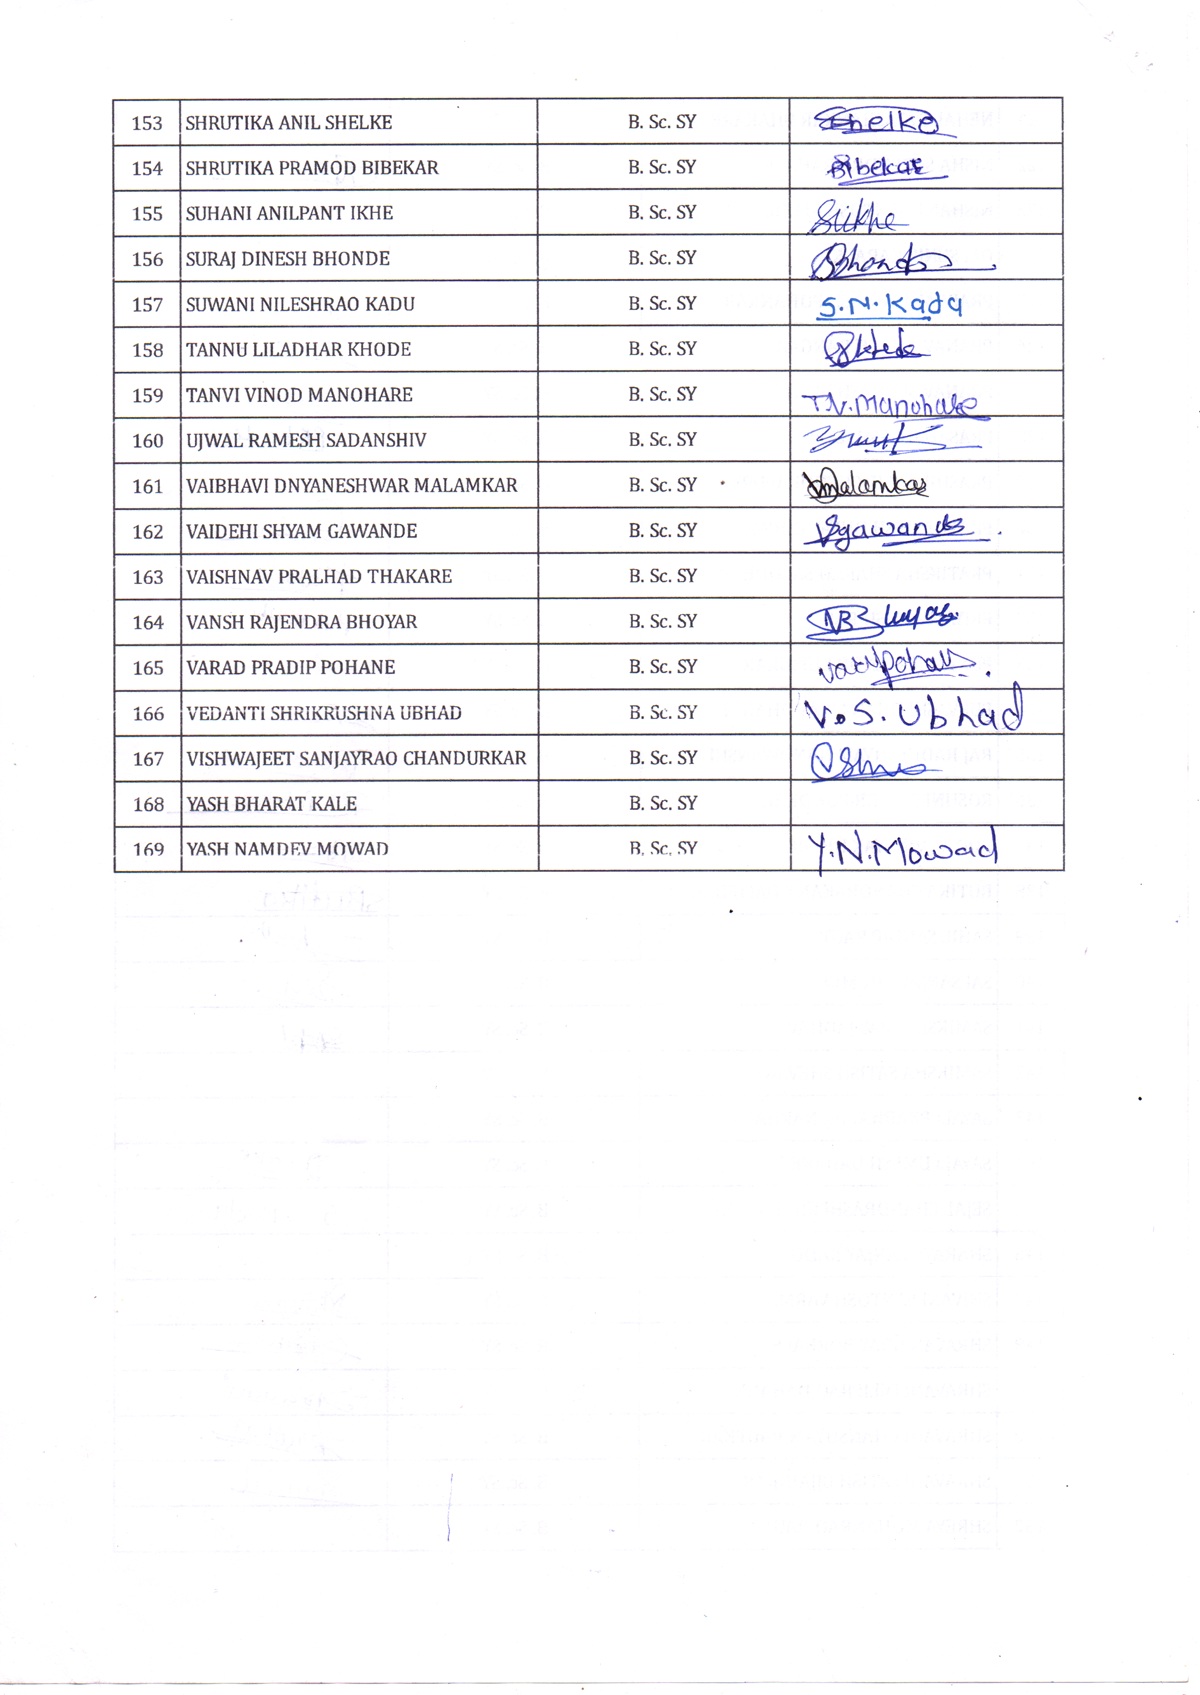 153 SHRUTIKA ANIL SHELKE B. Sc. SY Shelke
154 SHRUTIKA PRAMOD BIBEKAR B. Sc. SY Bibekar
155 SUHANI ANILPANT IKHE B. Sc. SY SIkhe
156 SURAJ DINESH BHONDE B. Sc. SY Bhonde
157 SUWANI NILESHRAO KADU B. Sc. SY S.N.Kadu
158 TANNU LILADHAR KHODE B. Sc. SY
159 TANVI VINOD MANOHARE B. Sc. SY T.V.Manohare
160 UJWAL RAMESH SADANSHIV B. Sc. SY
161 VAIBHAVI DNYANESHWAR MALAMKAR B. Sc. SY Malamkar
162 VAIDEHI SHYAM GAWANDE B. Sc. SY VSgawande
163 VAISHNAV PRALHAD THAKARE B. Sc. SY
164 VANSH RAJENDRA BHOYAR B. Sc. SY
165 VARAD PRADIP POHANE B. Sc. SY
166 VEDANTI SHRIKRUSHNA UBHAD B. Sc. SY V.S.Ubhad
167 VISHWAJEET SANJAYRAO CHANDURKAR B. Sc. SY
168 YASH BHARAT KALE B. Sc. SY
169 YASH NAMDEV MOWAD B. Sc. SY Y.N.Mowad